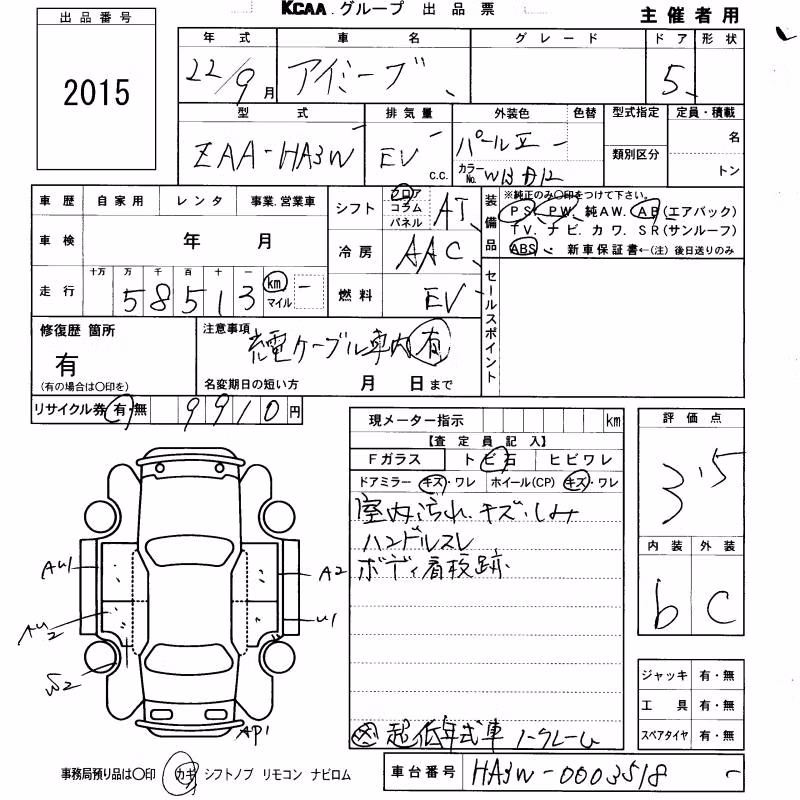 KCAA.グループ 出品票
主催者用
出品番号
2015
年式 車名 グレード ドア 形状
22/9月 アイミーブ 5
型式 排気量 外装色 色替 型式指定 定員・積載
ZAA-HA3W EV c.c. パールⅡ 類別区分 名
カラーNo. W13 トン
車歴 自家用 レンタ 事業.営業車
シフト フロア コラム パネル AT
装備品 ※純正のみ○印をつけて下さい。
PS. PW. 純AW. AB(エアバック)
TV. ナビ. カワ. SR(サンルーフ)
ABS. 新車保証書←(注) 後日送りのみ
車検 年 月
冷房 AAC
走行 十万 万 千 百 十 一
58513 km マイル
燃料 EV
セールスポイント
修復歴 箇所
有
(有の場合は○印を)
注意事項
充電ケーブル車内有
名変期日の短い方 月 日まで
リサイクル券 有・無 9910円
現メーター指示 km
【査定員記入】
Fガラス トビ石 ヒビワレ
ドアミラー キズ・ワレ ホイール(CP) キズ・ワレ
室内汚れ.キズ.しみ
ハンドルスレ
ボディ看板跡
評価点
3.5
内装 外装
b C
AU1
A2
AU2
U1
W2
AP1
ジャッキ 有・無
工具 有・無
スペアタイヤ 有・無
超低年式車 ノークレーム
事務局預り品は○印 カギ シフトノブ リモコン ナビロム
車台番号 HA3W-0003518